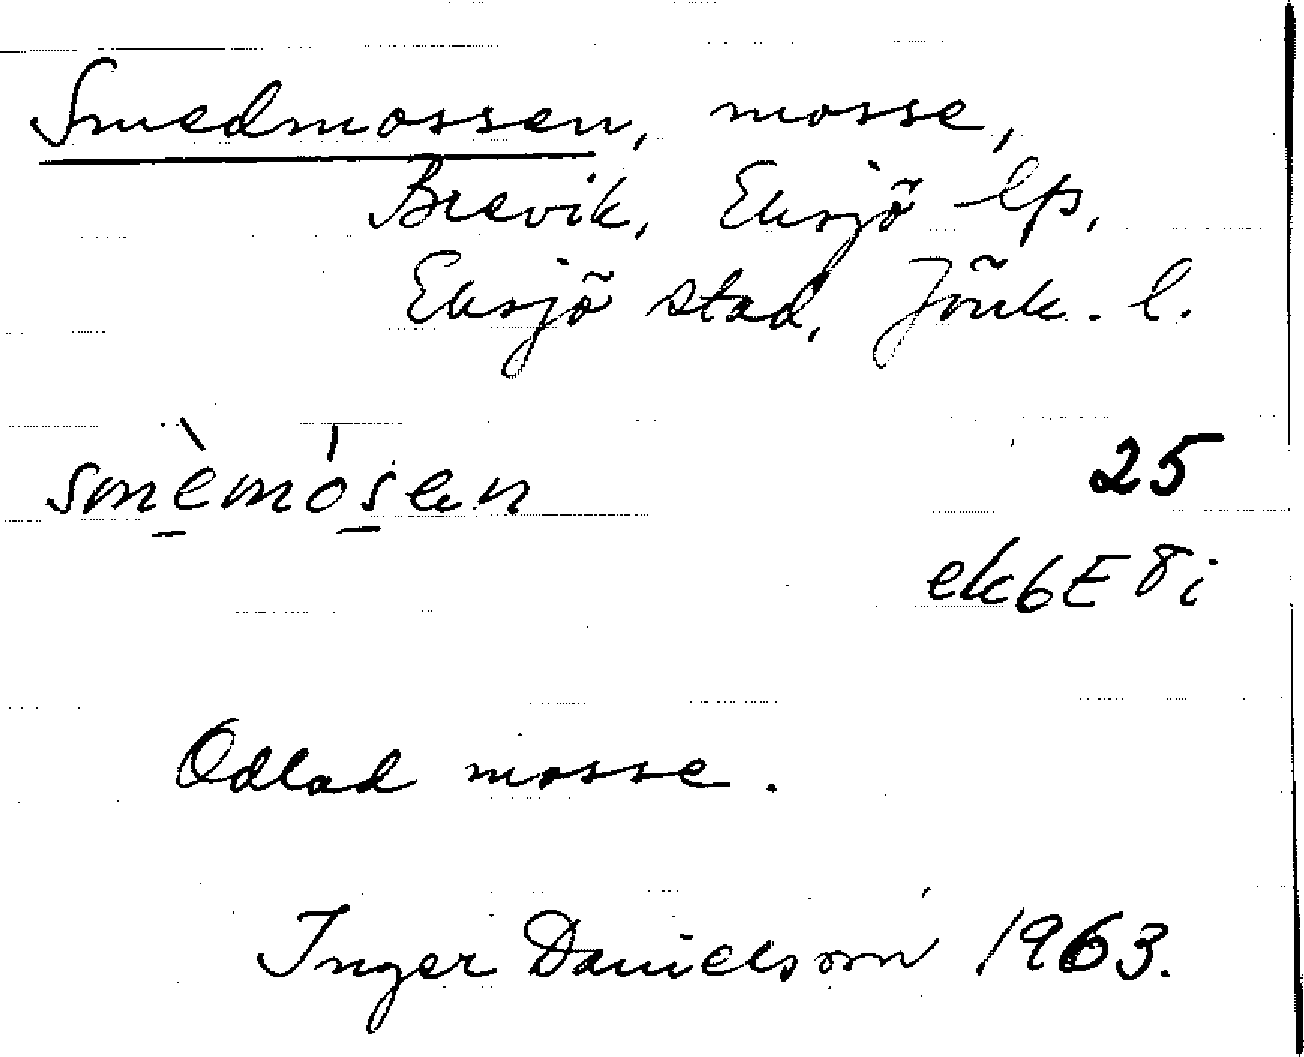 Smedmossen, mosse,
Brevik, Eksjö lfs,
Eksjö stad, Jönk. l.
smèmósen 25
ek6E8i
Odlad mosse.
Inger Danielsson 1963.